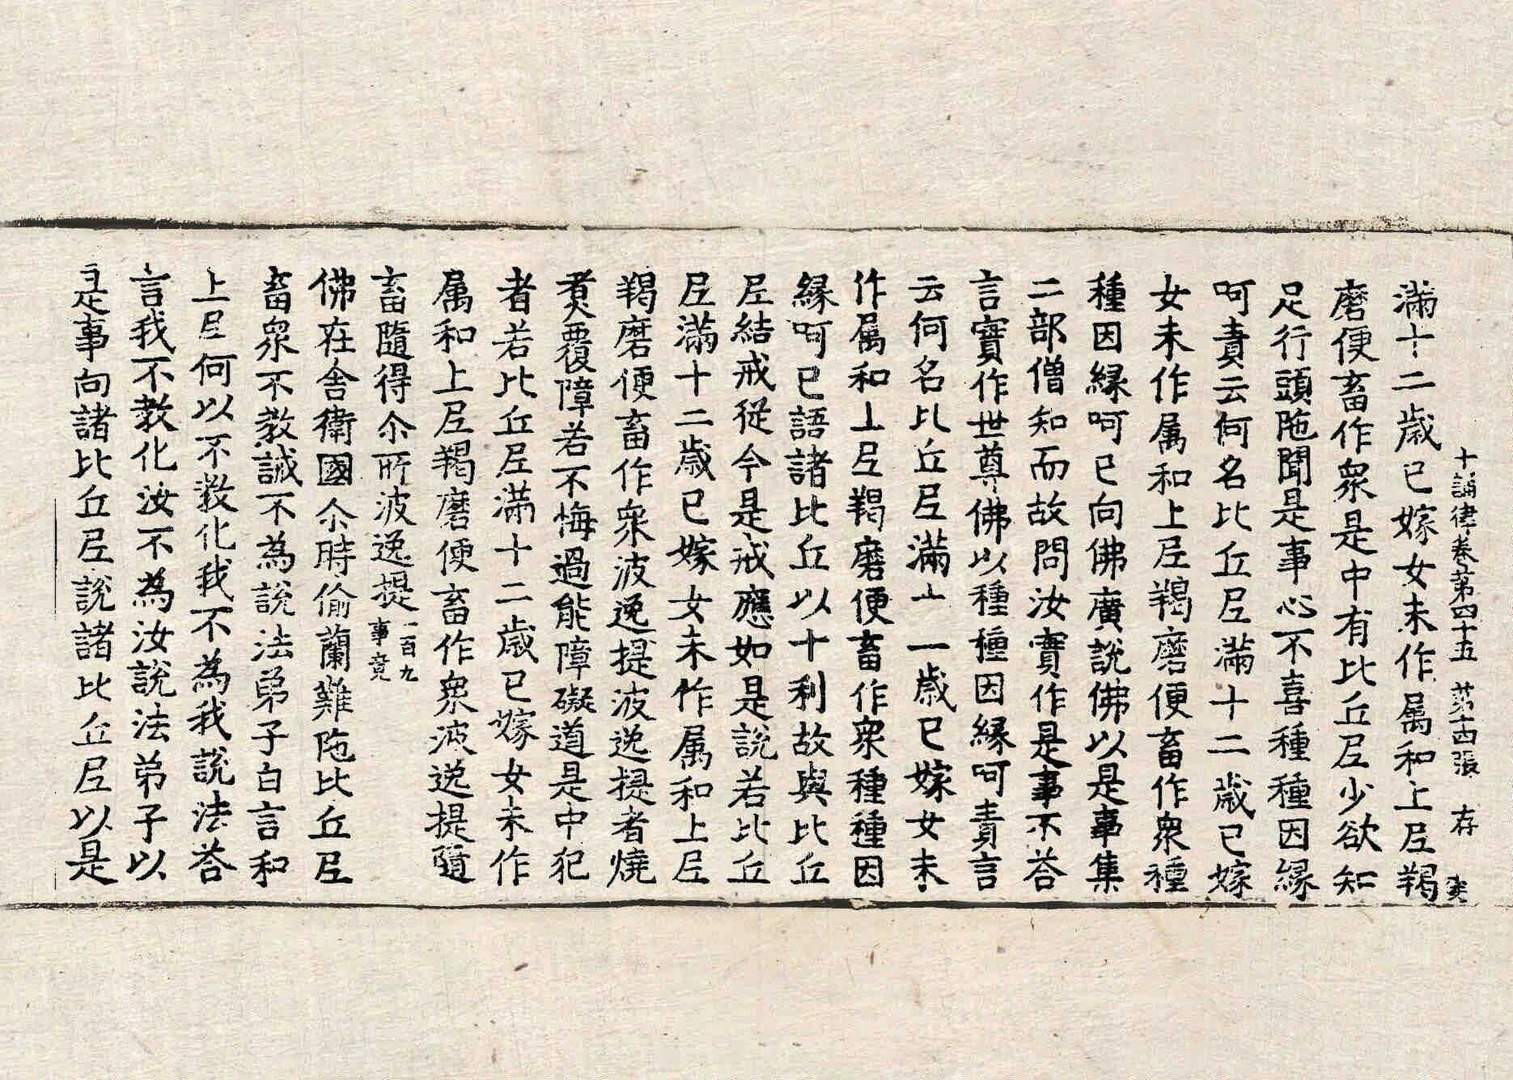 十誦律卷第四十五 第十四張 存
滿十二歲已嫁女未作属和上尼羯
磨便畜作衆是中有比丘尼少欲知
足行頭陁聞是事心不喜種種因縁
呵責云何名比丘尼滿十二歲已嫁
女未作属和上尼羯磨便畜作衆種
種因縁呵已向佛廣說佛以是事集
二部僧知而故問汝實作是事不荅
言實作世尊佛以種種因縁呵責言
云何名比丘尼滿十一歲已嫁女未
作属和上尼羯磨便畜作衆種種因
縁呵已語諸比丘以十利故與比丘
尼結戒從今是戒應如是說若比丘
尼滿十二歲已嫁女未作属和上尼
羯磨便畜作衆波逸提波逸提者燒
煑覆障若不悔過能障礙道是中犯
者若比丘尼滿十二歲已嫁女未作
属和上尼羯磨便畜作衆波逸提隨
畜隨得尒所波逸提一百九事竟
佛在舍衛國尒時偷蘭難陁比丘尼
畜衆不教誡不為說法弟子白言和
上尼何以不教化我不為我說法荅
言我不教化汝不為汝說法弟子以
是事向諸比丘尼說諸比丘尼以是